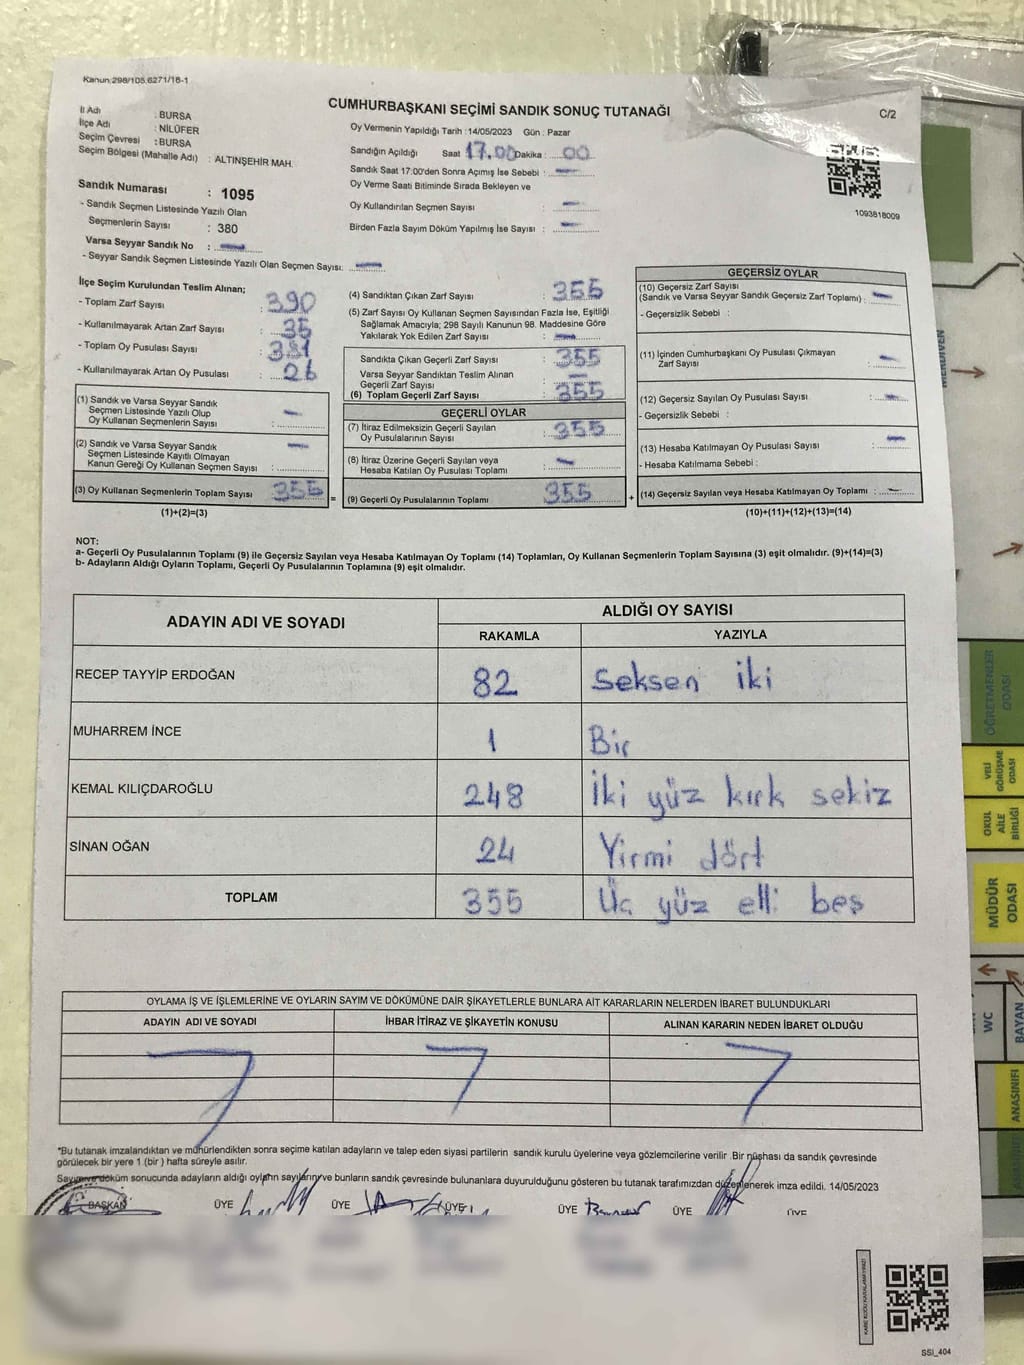 Kanun:298/105.6271/16-1
CUMHURBAŞKANI SEÇİMİ SANDIK SONUÇ TUTANAĞI
C/2
İl Adı : BURSA
İlçe Adı : NİLÜFER
Seçim Çevresi : BURSA
Seçim Bölgesi (Mahalle Adı) : ALTINŞEHİR MAH.
Sandık Numarası : 1095
- Sandık Seçmen Listesinde Yazılı Olan
Seçmenlerin Sayısı : 380
Varsa Seyyar Sandık No : -
- Seyyar Sandık Seçmen Listesinde Yazılı Olan Seçmen Sayısı: -
Oy Vermenin Yapıldığı Tarih : 14/05/2023 Gün : Pazar
Sandığın Açıldığı Saat 17.00 Dakika : 00
Sandık Saat 17:00'den Sonra Açımış İse Sebebi : -
Oy Verme Saati Bitiminde Sırada Bekleyen ve
Oy Kullandırılan Seçmen Sayısı : -
Birden Fazla Sayım Döküm Yapılmış İse Sayısı : -
1093818009
İlçe Seçim Kurulundan Teslim Alınan;
- Toplam Zarf Sayısı : 390
- Kullanılmayarak Artan Zarf Sayısı : 35
- Toplam Oy Pusulası Sayısı : 381
- Kullanılmayarak Artan Oy Pusulası : 26
(1) Sandık ve Varsa Seyyar Sandık
Seçmen Listesinde Yazılı Olup
Oy Kullanan Seçmenlerin Sayısı : -
(2) Sandık ve Varsa Seyyar Sandık
Seçmen Listesinde Kayıtlı Olmayan
Kanun Gereği Oy Kullanan Seçmen Sayısı : -
(3) Oy Kullanan Seçmenlerin Toplam Sayısı : 355
(1)+(2)=(3)
=
(4) Sandıktan Çıkan Zarf Sayısı : 355
(5) Zarf Sayısı Oy Kullanan Seçmen Sayısından Fazla İse, Eşitliği
Sağlamak Amacıyla; 298 Sayılı Kanunun 98. Maddesine Göre
Yakılarak Yok Edilen Zarf Sayısı : -
Sandıkta Çıkan Geçerli Zarf Sayısı : 355
Varsa Seyyar Sandıktan Teslim Alınan
Geçerli Zarf Sayısı : -
(6) Toplam Geçerli Zarf Sayısı : 355
GEÇERLİ OYLAR
(7) İtiraz Edilmeksizin Geçerli Sayılan
Oy Pusulalarının Sayısı : 355
(8) İtiraz Üzerine Geçerli Sayılan veya
Hesaba Katılan Oy Pusulası Toplamı : -
(9) Geçerli Oy Pusulalarının Toplamı : 355
+
GEÇERSİZ OYLAR
(10) Geçersiz Zarf Sayısı
(Sandık ve Varsa Seyyar Sandık Geçersiz Zarf Toplamı) : -
- Geçersizlik Sebebi :
(11) İçinden Cumhurbaşkanı Oy Pusulası Çıkmayan
Zarf Sayısı : -
(12) Geçersiz Sayılan Oy Pusulası Sayısı : -
- Geçersizlik Sebebi :
(13) Hesaba Katılmayan Oy Pusulası Sayısı : -
- Hesaba Katılmama Sebebi :
(14) Geçersiz Sayılan veya Hesaba Katılmayan Oy Toplamı : -
(10)+(11)+(12)+(13)=(14)
NOT:
a- Geçerli Oy Pusulalarının Toplamı (9) ile Geçersiz Sayılan veya Hesaba Katılmayan Oy Toplamı (14) Toplamları, Oy Kullanan Seçmenlerin Toplam Sayısına (3) eşit olmalıdır. (9)+(14)=(3)
b- Adayların Aldığı Oyların Toplamı, Geçerli Oy Pusulalarının Toplamına (9) eşit olmalıdır.
ADAYIN ADI VE SOYADI ALDIĞI OY SAYISI
RAKAMLA YAZIYLA
RECEP TAYYİP ERDOĞAN 82 Seksen iki
MUHARREM İNCE 1 Bir
KEMAL KILIÇDAROĞLU 248 İki yüz kırk sekiz
SİNAN OĞAN 24 Yirmi dört
TOPLAM 355 Üç yüz elli beş
OYLAMA İŞ VE İŞLEMLERİNE VE OYLARIN SAYIM VE DÖKÜMÜNE DAİR ŞİKAYETLERLE BUNLARA AİT KARARLARIN NELERDEN İBARET BULUNDUKLARI
ADAYIN ADI VE SOYADI İHBAR İTİRAZ VE ŞİKAYETİN KONUSU ALINAN KARARIN NEDEN İBARET OLDUĞU
*Bu tutanak imzalandıktan ve mühürlendikten sonra seçime katılan adayların ve talep eden siyasi partilerin sandık kurulu üyelerine veya gözlemcilerine verilir .Bir nüshası da sandık çevresinde
görülecek bir yere 1 (bir ) hafta süreyle asılır.
Sayım ve döküm sonucunda adayların aldığı oyların sayılarını ve bunların sandık çevresinde bulunanlara duyurulduğunu gösteren bu tutanak tarafımızdan düzenlenerek imza edildi. 14/05/2023
BAŞKAN ÜYE ÜYE ÜYE ÜYE ÜYE ÜYE
SSI_404
MERDİVEN
ÖĞRETMENLER
ODASI
VELİ
GÖRÜŞME
ODASI
OKUL
AİLE
BİRLİĞİ
MÜDÜR
ODASI
WC
BAYAN
ANASINIFI